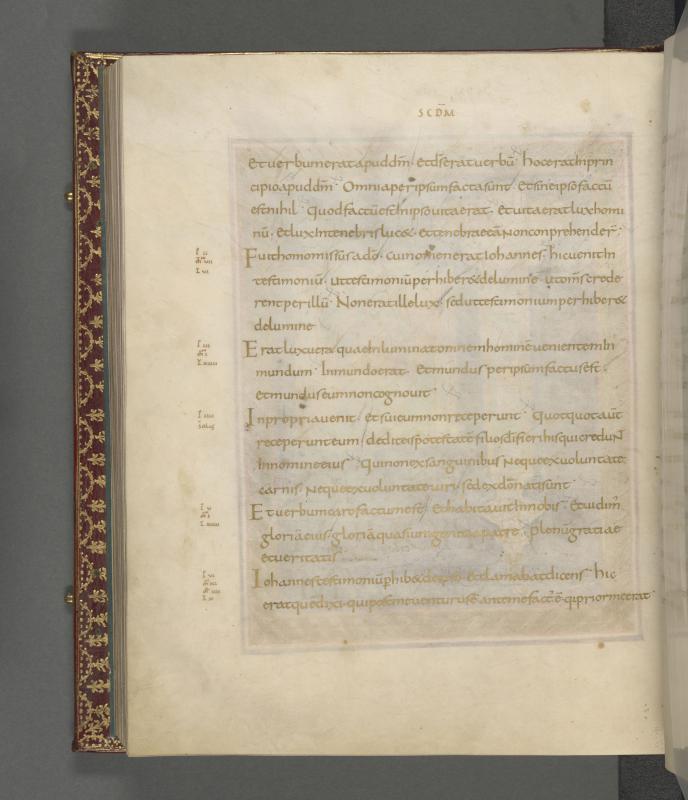 SCDM
et uerbum erat apud dm̄. et ds̄ erat uerbū. hoc erat in prin
cipio apud dm̄. Omnia per ipsum facta sunt. et sine ipso factū
est nihil. quod factū est in ipso uita erat. et uita erat lux homi
nū. et lux in tenebris luc&. et tenebrae eā non conprehender̄.
Fuit homo missus a dō. cui nomen erat iohannes. hic uenit in
testimoniū. ut testimoniū perhiber& de lumine. ut om̄s crede
rent per illū. Non erat ille lux. sed ut testimonium perhiber&
de lumine
Erat lux uera quae inluminat omnem hominē uenientem in
mundum. In mundo erat. et mundus per ipsum factus est.
et mundus eum non cognouit
In propria uenit. et sui eum non receperunt. quotquot aūt
receperunt eum / dedit eis potestatē filios dī fieri his qui credunt
in nomine eius. qui non ex sanguinibus neque ex uoluntate
carnis. neque ex uoluntate uiri. sed ex dō nati sunt.
Et uerbum caro factum est. et habitauit in nobis. et uidim'
gloriā eius. gloriā quasi unigeniti a patre. plenū gratiae
et ueritatis
Iohannes testimoniū phib& de ipso. et clamabat dicens. hic
erat quē dixi. qui post me uenturus ē. ante me fact' ē. q̄ prior me erat